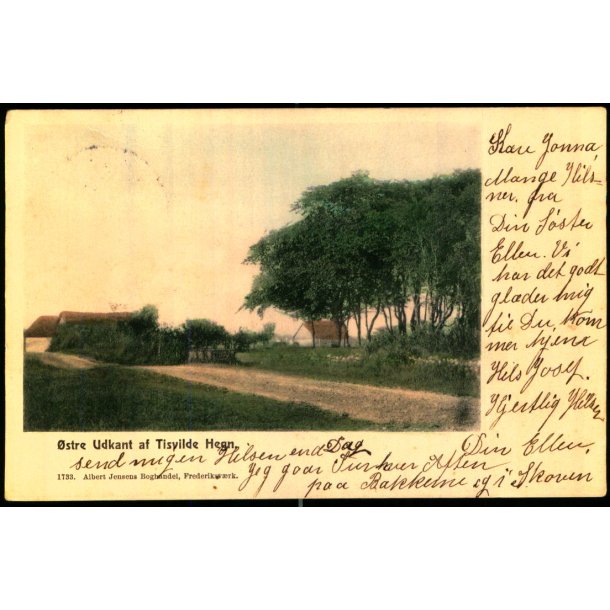 Kære Jonna,
Mange Hils-
ner. fra
Din Søster
Ellen. Vi
har det godt
glæder mig
til Du, kom
mer hjem
Hils Josef.
Hjertlig Hilsen
Din Ellen.
Østre Udkant af Tisvilde Hegn.
1733. Albert Jensens Boghandel, Frederiksværk.
send mig en Hilsen end Dag
Jeg gaar Tur hver Aften
paa Bakkerne og i Skoven